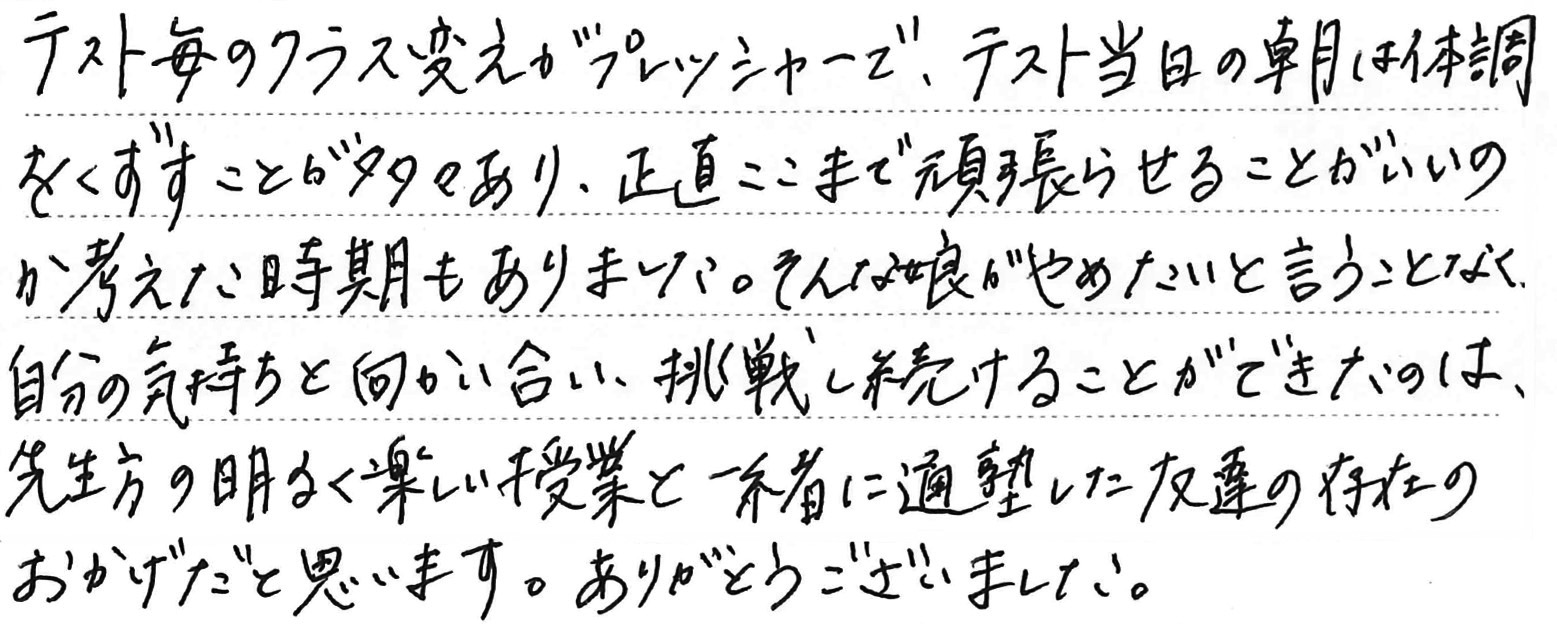 テスト毎のクラス変えがプレッシャーで、テスト当日の朝は体調
をくずすことが多々あり、正直ここまで頑張らせることがいいの
か考えた時期もありました。そんな娘がやめたいと言うことなく、
自分の気持ちと向かい合い、挑戦し続けることができたのは、
先生方の明るく楽しい授業と一緒に通塾した友達の存在の
おかげだと思います。ありがとうございました。